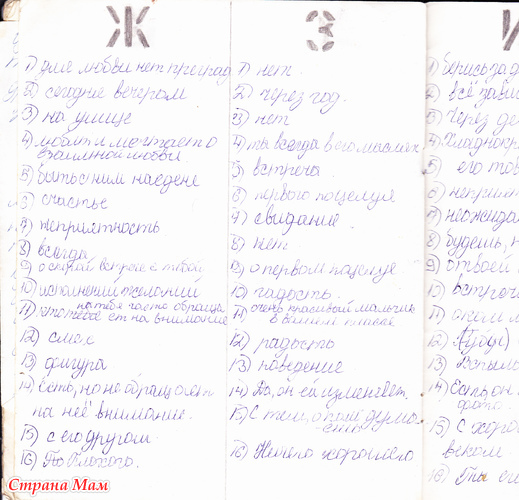 Ж
1) для любви нет преград
2) сегодня вечером
3) на улице
4) любит и мечтает о
взаимной любви.
5) быть с ним наедене
6) счастье
7) неприятность
8) всегда
9) о скорой встрече с тобой
10) исполнений желаний
11) на тебя часто обраща
ет на внимание
12) смех
13) фигура
14) Есть, но не обращает
на неё внимание.
15) с его другом.
16) По плохого.
З
1) нет.
2) через год.
3) нет
4) ты всегда в его мыслях
5) встреча
6) первого поцелуя
7) свидание
8) нет
9) о первом поцелуе
10) гадость.
11) очень красивый мальчик
в вашем классе
12) радость
13) поведение
14) Да, он ей изменяет.
15) С тем, о ком дума-
ешь
16) Ничего хорошего
И
1) берись за д
2) всё зави
3) Через де
4) Хладнокр
5) его тов
6) неприят
7) неожида
8) будешь, н
9) о твоей
10) встреч
11)
12)
13) Вспыль
14) Есть он.
фото
15) С хоро
веком.
16) Ты
Страна Мам